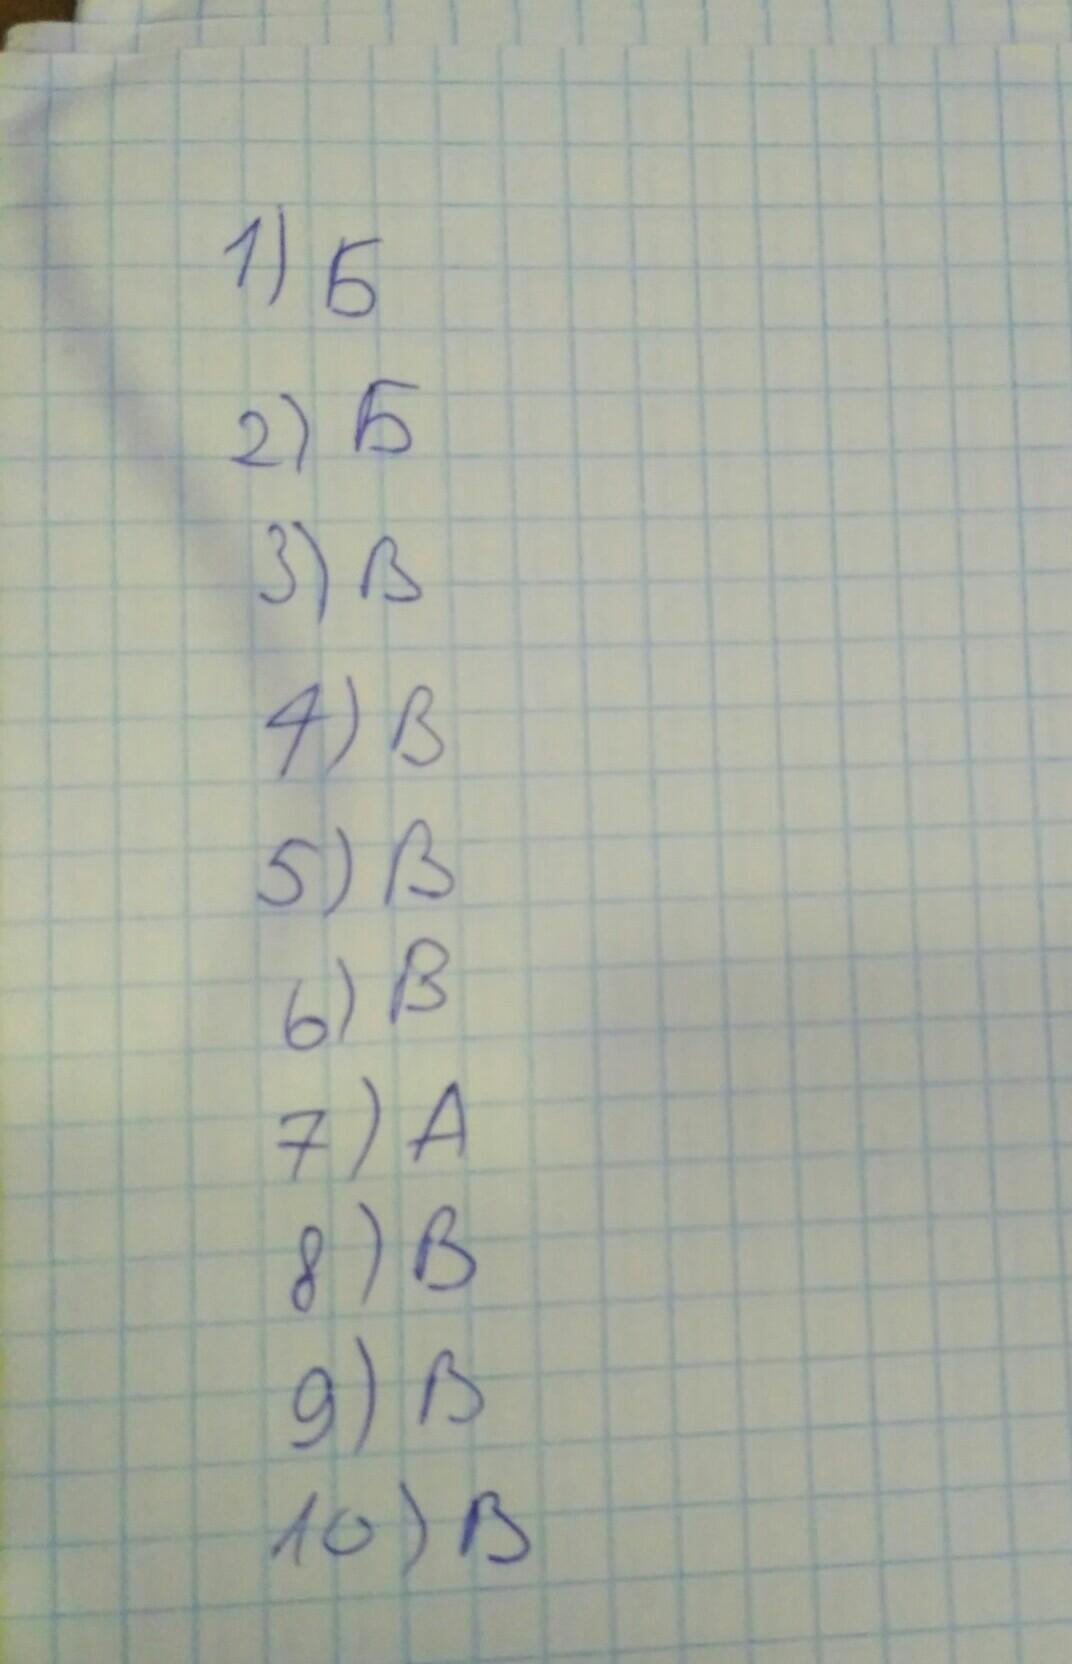 1) Б
2) Б
3) В
4) В
5) В
6) В
7) А
8) В
9) В
10) В